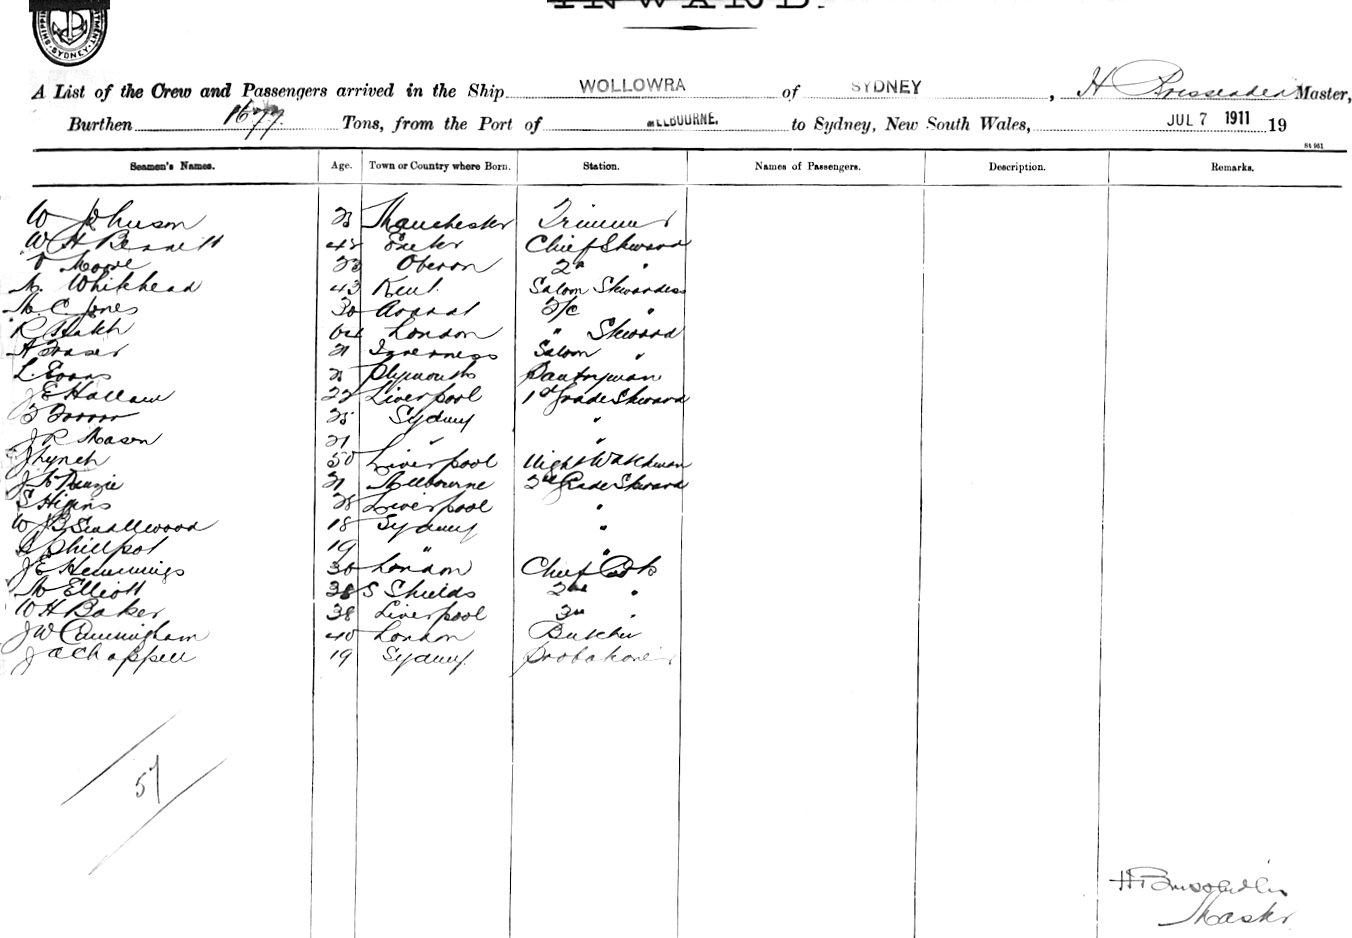 INWARD.
SYDNEY
A List of the Crew and Passengers arrived in the Ship WOLLOWRA of SYDNEY, H Master,
Burthen 1677. Tons, from the Port of MELBOURNE. to Sydney, New South Wales, JUL 7 1911 19
St 961
Seamen's Names. Age. Town or Country where Born. Station. Names of Passengers. Description. Remarks.
W Johnson Manchester Trimmer
W H Bennett 42 Exeter Chief Steward
Moore 23 Oberon 2nd "
M. Whitehead 43 Kent. Saloon Stewardess
M. C. Jones 30 Ararat 2/c "
R 64 London " Steward
A Fraser 21 Inverness Saloon "
L. Evans Plymouth Pantryman
J E Hallam 22 Liverpool 1st Grade Steward
Sydney "
J R Mason 21 " "
J Lynch 50 Liverpool Night Watchman
J 21 Melbourne 2nd Grade Steward
S Higins 28 Liverpool "
W B Smallwood 18 Sydney "
Phillpot 19 " "
J E Hemmings 30 London Chief Cook
M Elliott 38 S Shields 2nd "
W H Baker 38 Liverpool 3rd "
J W Cunningham 40 London Butcher
J A Chappell 19 Sydney.
57
H
Master